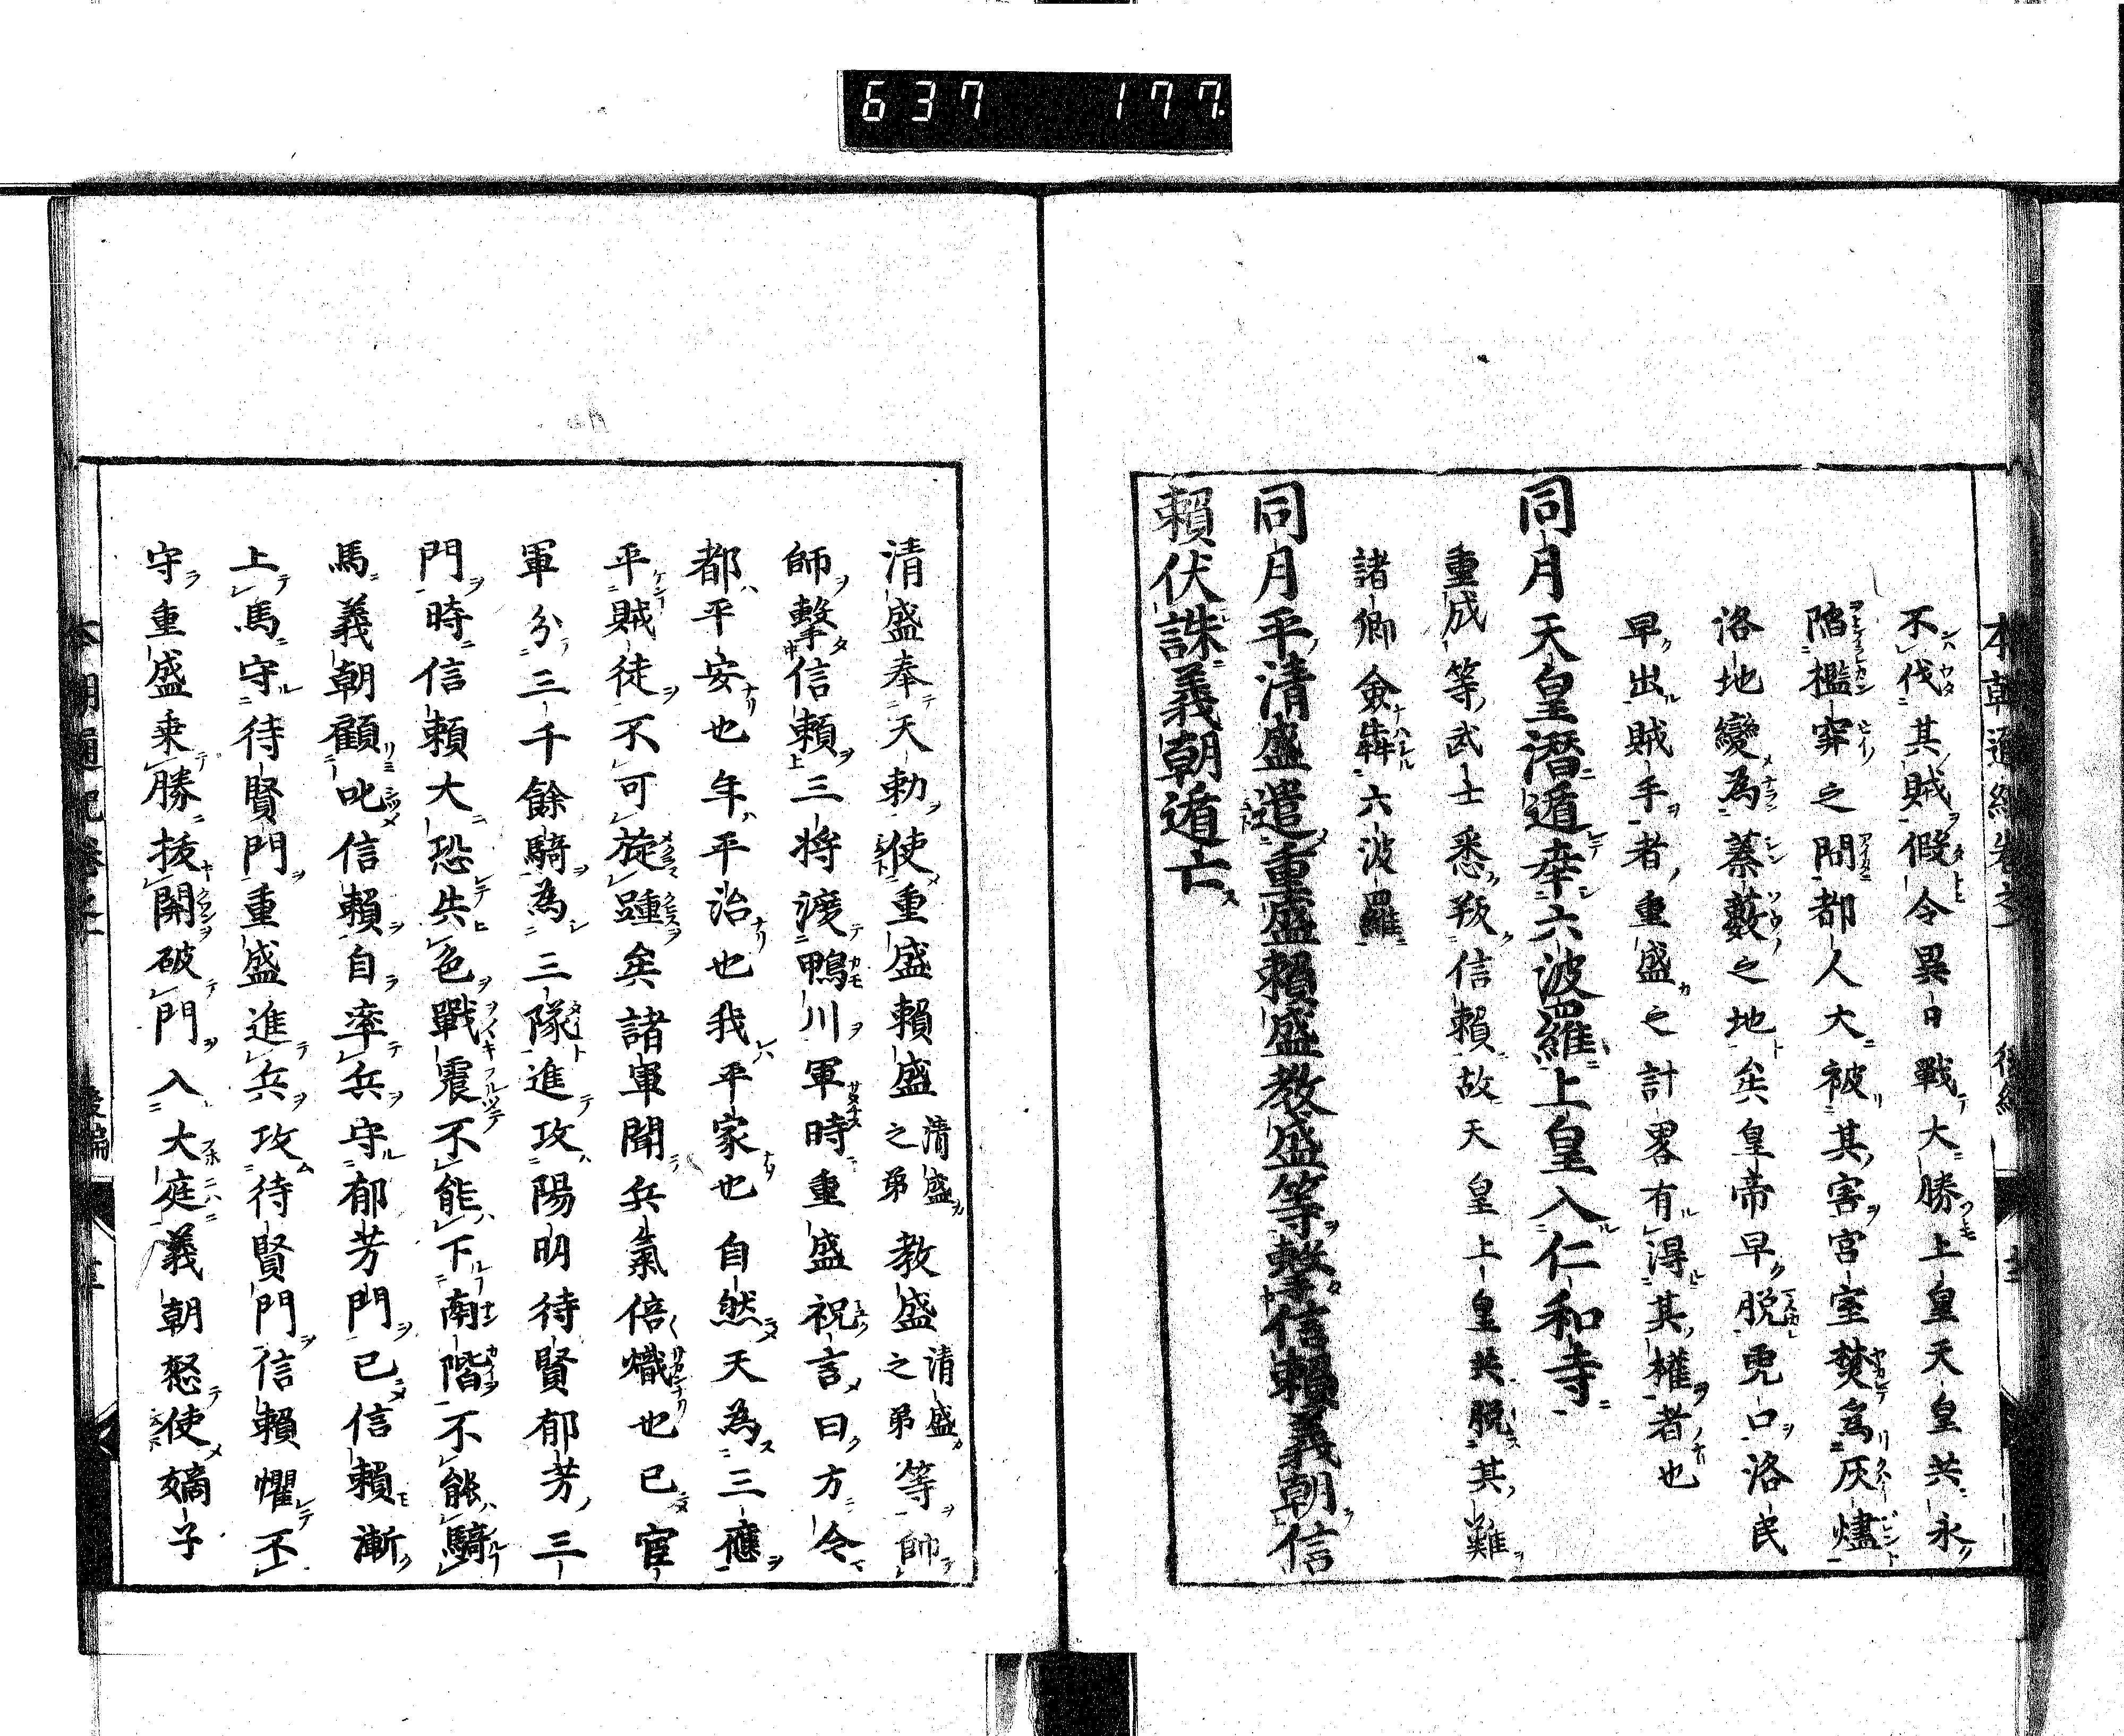 637 177
不伐其賊假令異日戰大勝上皇天皇共永
陷檻穽之間都人大被其害宮室焚為灰燼
洛地變為蓁藪之地矣皇帝早脱兎口洛民
早出賊手者重盛之計畧有得其權者也
同月天皇潛遁幸六波羅上皇入仁和寺
重成等武士悉叛信賴故天皇上皇共脱其難
諸卿僉犇六波羅
同月平清盛遣重盛賴盛教盛等擊信賴義朝信
賴伏誅義朝遁亡
清盛奉天勅使重盛賴盛清盛之弟教盛清盛之弟等帥
師擊信賴三将渡鴨川軍時重盛祝言曰方今
都平安也年平治也我平家也自然天為三應
平賊徒不可旋踵矣諸軍聞兵氣倍熾也已官
軍分三千餘騎為三隊進攻陽明待賢郁芳三
門時信賴大恐失色戰震不能下南階不能騎
馬義朝顧叱信賴自率兵守郁芳門已信賴漸
上馬守待賢門重盛進兵攻待賢門信賴懼不
守重盛乗勝抜關破門入大庭義朝怒使嫡子